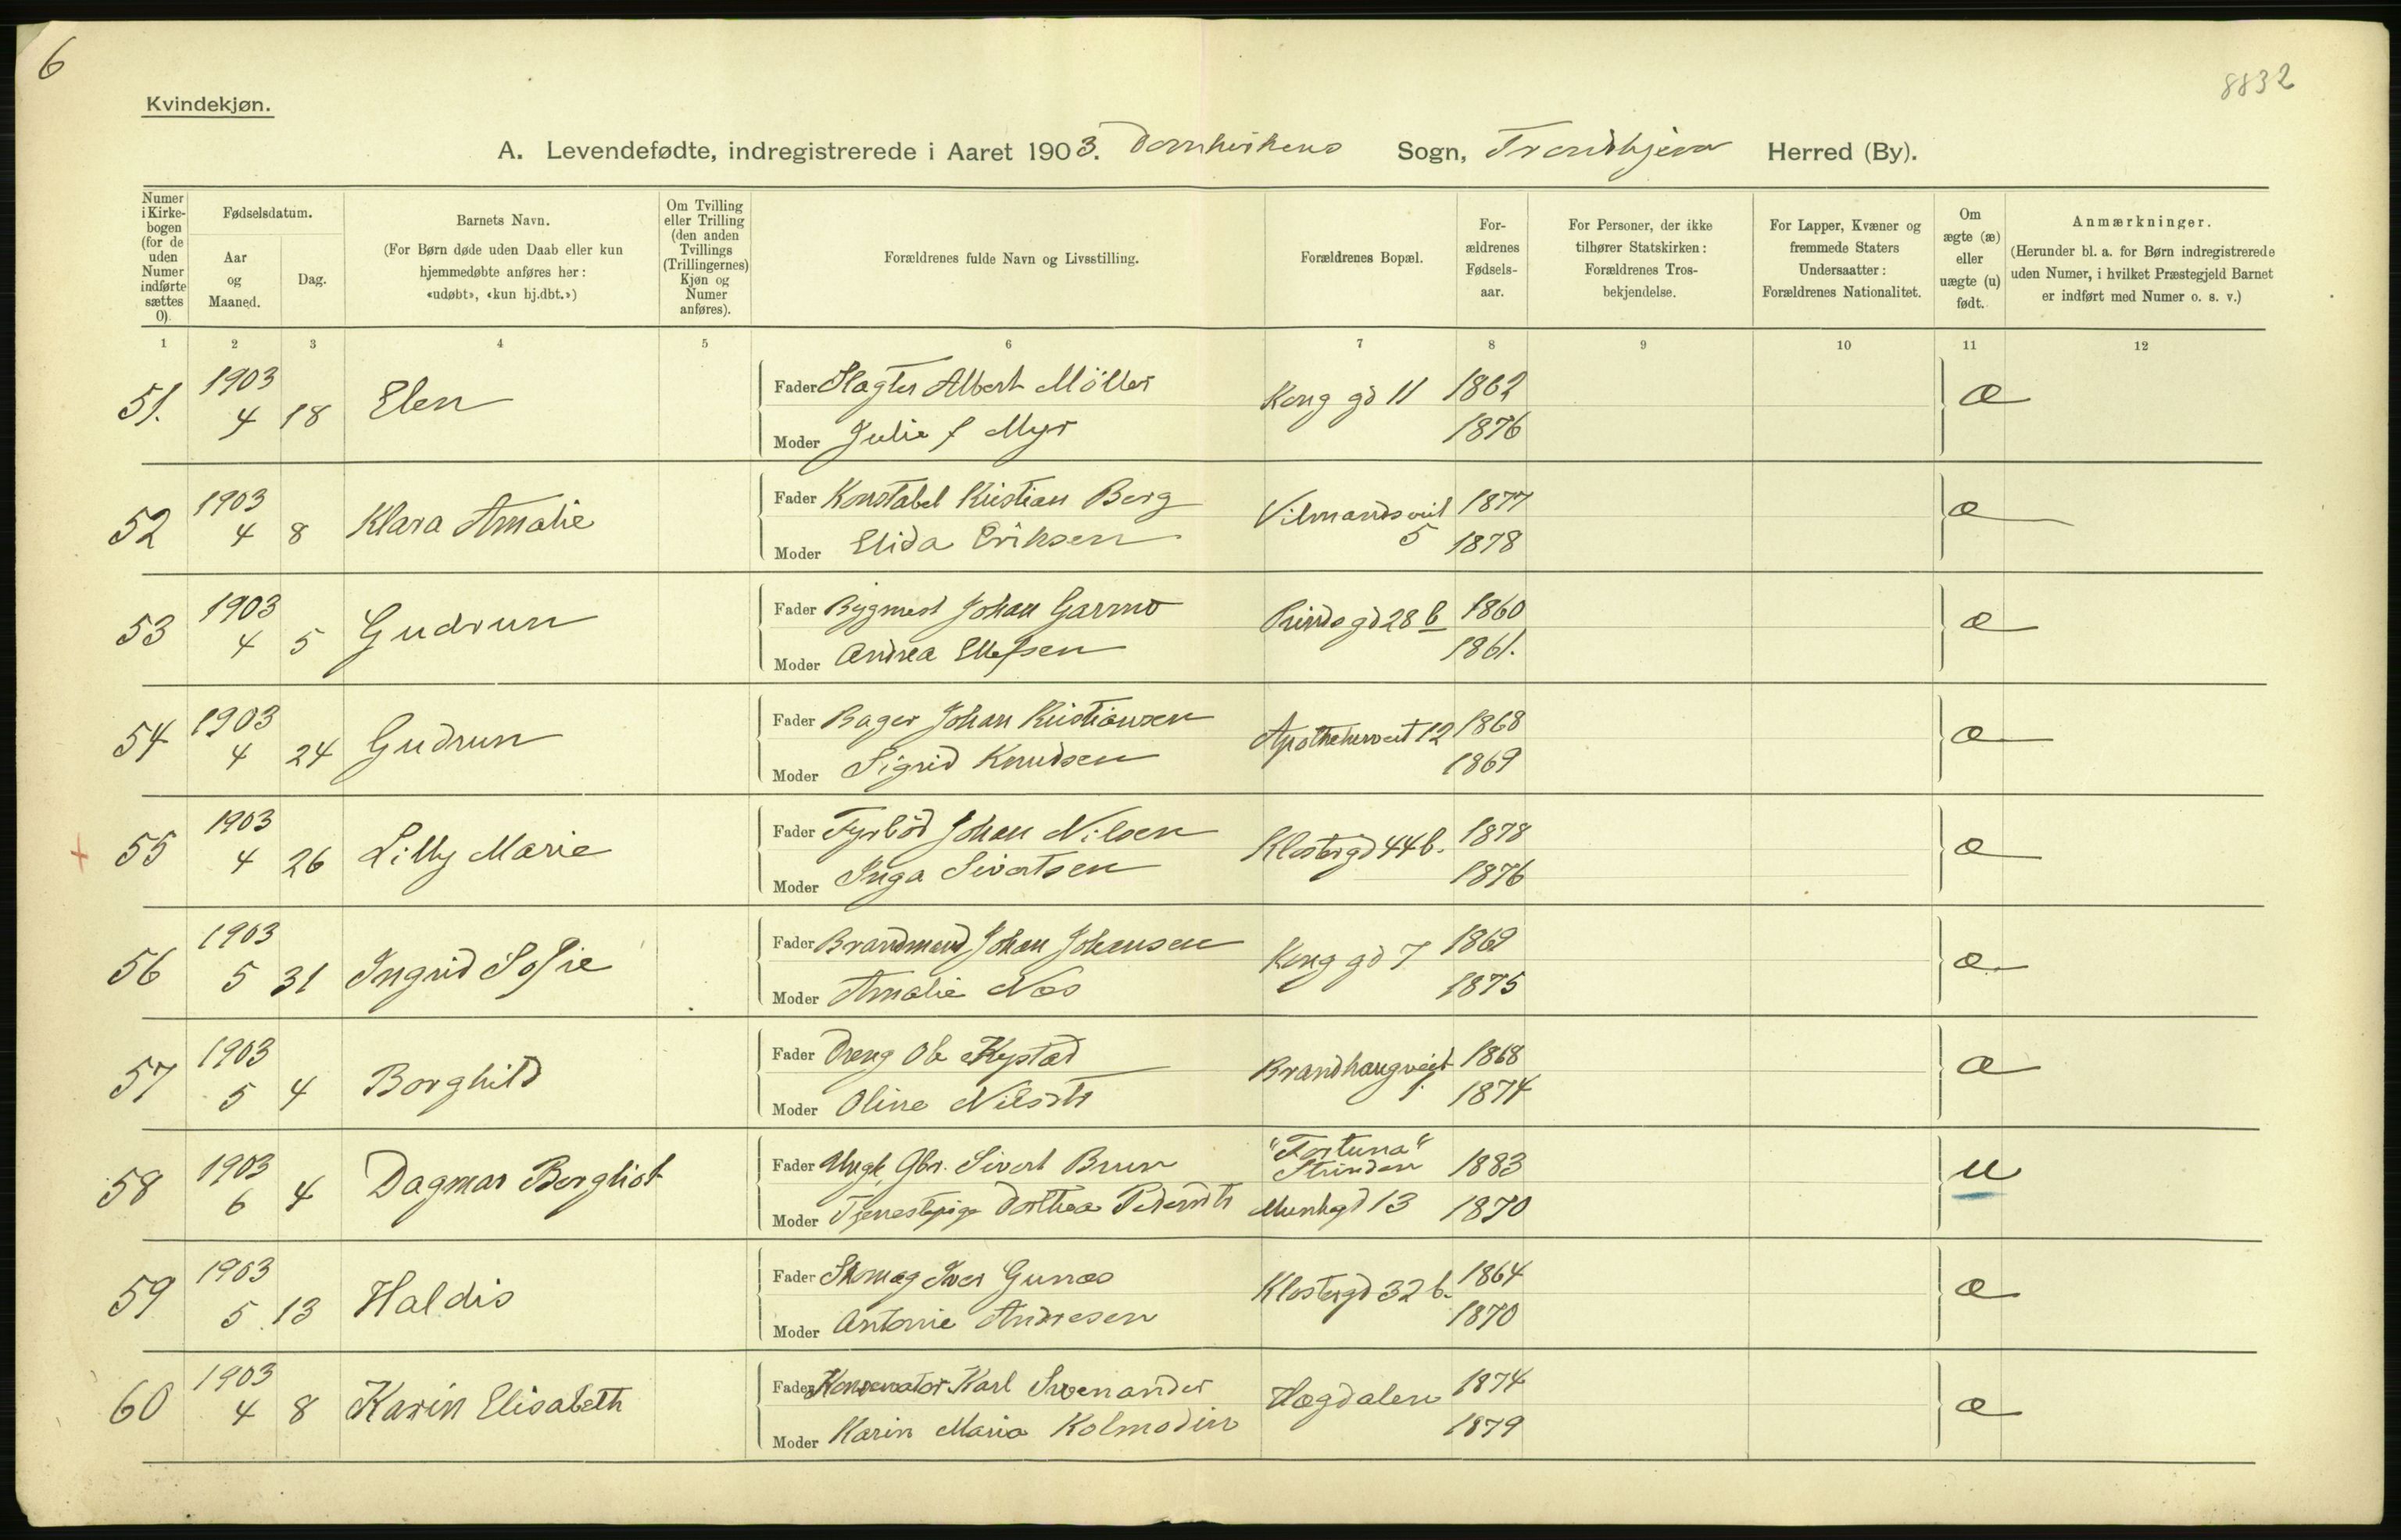 6
8832
Kvindekjøn.
A. Levendefødte, indregistrerede i Aaret 1903. Domkirkens Sogn, Trondhjem Herred (By).
Numer i Kirkebogen (for de uden Numer indførte sættes 0).
Fødselsdatum.
Aar og Maaned.
Dag.
Barnets Navn.
(For Børn døde uden Daab eller kun hjemmedøbte anføres her: «udøbt», «kun hj.dbt.»)
Om Tvilling eller Trilling (den anden Tvillings (Trillingernes) Kjøn og Numer anføres).
Forældrenes fulde Navn og Livsstilling.
Forældrenes Bopæl.
For-ældrenes Fødsels-aar.
For Personer, der ikke tilhører Statskirken: Forældrenes Tros-bekjendelse.
For Lapper, Kvæner og fremmede Staters Undersaatter: Forældrenes Nationalitet.
Om ægte (æ) eller uægte (u) født.
Anmærkninger.
(Herunder bl. a. for Børn indregistrerede uden Numer, i hvilket Præstegjeld Barnet er indført med Numer o. s. v.)
1 2 3 4 5 6 7 8 9 10 11 12
51. 1903 4 18 Elen Fader Slagter Albert Möller Kong gd 11 1862 æ
Moder Julie f Myr 1876
52 1903 4 8 Klara Amalie Fader Konstabel Kristian Berg Vilmandsveit 5 1877 æ
Moder Elida Eriksen 1878
53 1903 4 5 Gudrun Fader Bygmest Johan Garmo Prinds gd 28 b 1860 æ
Moder Andrea Ellefsen 1861.
54 1903 4 24 Gudrun Fader Bager Johan Kristiansen Apothekerveit 12 1868 æ
Moder Sigrid Knudsen 1869
55 1903 4 26 Lilly Marie Fader Fyrböd Johan Nilsen Klostergd 44 b. 1878 æ
Moder Inga Sivertsen 1876
56 1903 5 31 Ingrid Sofie Fader Brandmand Johan Johansen Kong gd 7 1869 æ
Moder Amalie Næs 1875
57 1903 5 4 Borghild Fader Dreng Ole Kystad Brandhaugveit 1. 1868 æ
Moder Oline Nilsdtr 1874
58 1903 6 4 Dagmar Bergliot Fader Ungk, Gbr. Sivert Brun "Fortuna" Strinden 1883 u
Moder Tjenestepige Dorthea Pedersdtr Munkgd 13 1870
59 1903 5 13 Haldis Fader Skomag Iver Gunæs Klostergd 32 b. 1864 æ
Moder Antonie Andresen 1870
60 1903 4 8 Karin Elisabeth Fader Konservator Karl Svenander Øgdalen 1874 æ
Moder Karin Maria Kolmodin 1879